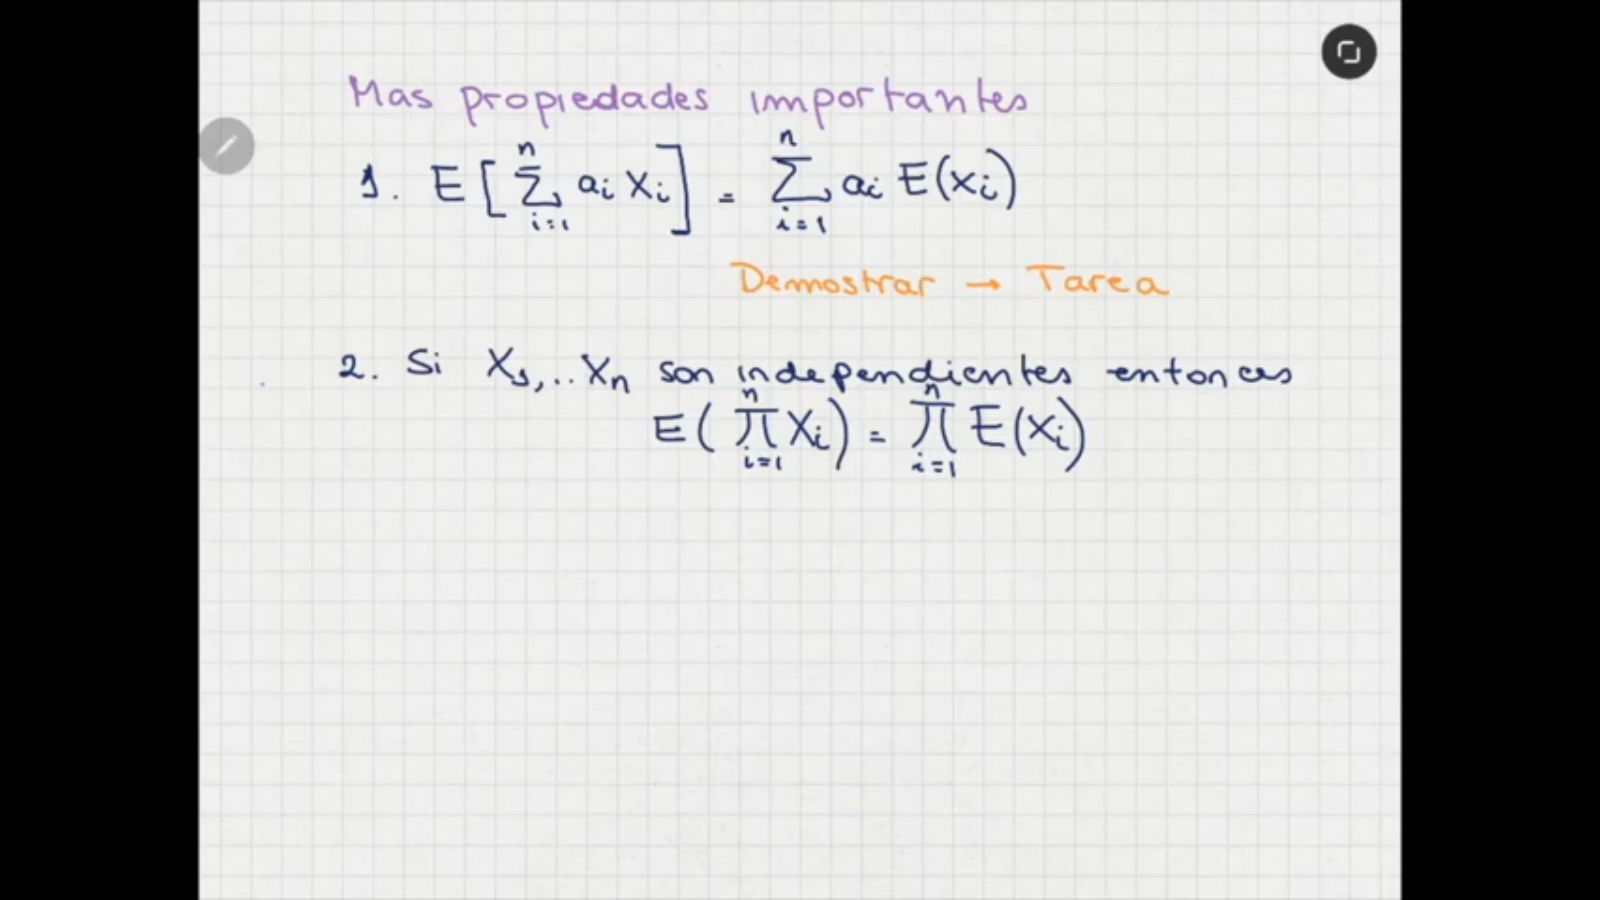 Mas propiedades importantes
1. E[∑_{i=1}^{n} a_i X_i] = ∑_{i=1}^{n} a_i E(X_i)
Demostrar → Tarea
2. Si X_1,..X_n son independientes entonces
E(∏_{i=1}^{n} X_i) = ∏_{i=1}^{n} E(X_i)